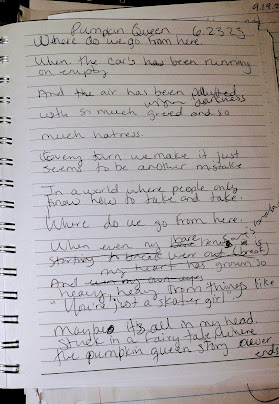 9.19.2
Pumpkin Queen 6.23.23
Where do we go from here.
When the car's has been running
on empty
And the air has been polluted
with so much greed and so
much hatress.
Every turn we make it just
seems to be another mistake
In a world where people only
know how to take and take.
Where do we go from here.
When even my
starting to break over out (break)
my heart has grown so
And
heavy, heavy from things like
"You're just a skater girl"
Maybe it's all in my head.
Stuck in a fairy tale where
the pumpkin queen story never
ends